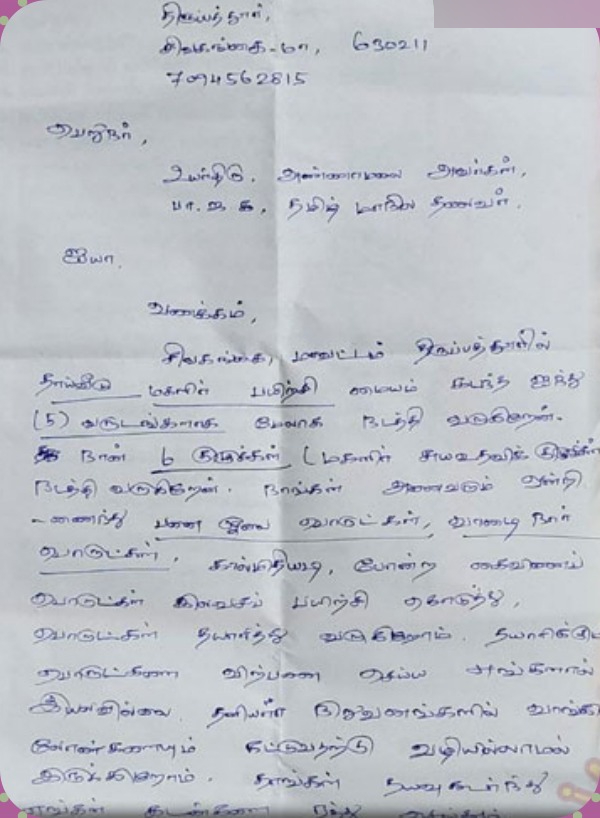 திருப்பத்தூர்,
சிவகங்கை-மா, 630211
7094562815
பெறுநர்,
உயர்திரு. அண்ணாமலை அவர்கள்,
பா.ஜ.க, தமிழ் மாநில தலைவர்.
ஐயா,
வணக்கம்,
சிவகங்கை, மாவட்டம் திருப்பத்தூரில்
தாய்வீடு மகளிர் பயிற்சி மையம் கடந்த ஐந்து
(5) வருடங்களாக மேலாக நடத்தி வருகிறேன்.
நான் 6 குழுக்கள் (மகளிர் சுயஉதவிக் குழுக்கள்
நடத்தி வருகிறேன். நாங்கள் அனைவரும் ஒன்றி
-ணைந்து பனை ஓலை பொருட்கள், வாழை நார்
பொருட்கள், கால்மிதியடி, போன்ற கைவினைப்
பொருட்கள் இலவசப் பயிற்சி கொடுத்து,
பொருட்கள் தயாரித்து வருகிறோம். தயாரிக்கும்
பொருட்களை விற்பனை செய்ய எங்களால்
இயலவில்லை. தனியார் நிறுவனங்களில் வாங்கி
லோன்களையும் கட்டுவதற்கு வழியில்லாமல்
இருக்கிறோம். தாங்கள் தயவுகூர்ந்து
எங்கள் கடன்களை ரத்து